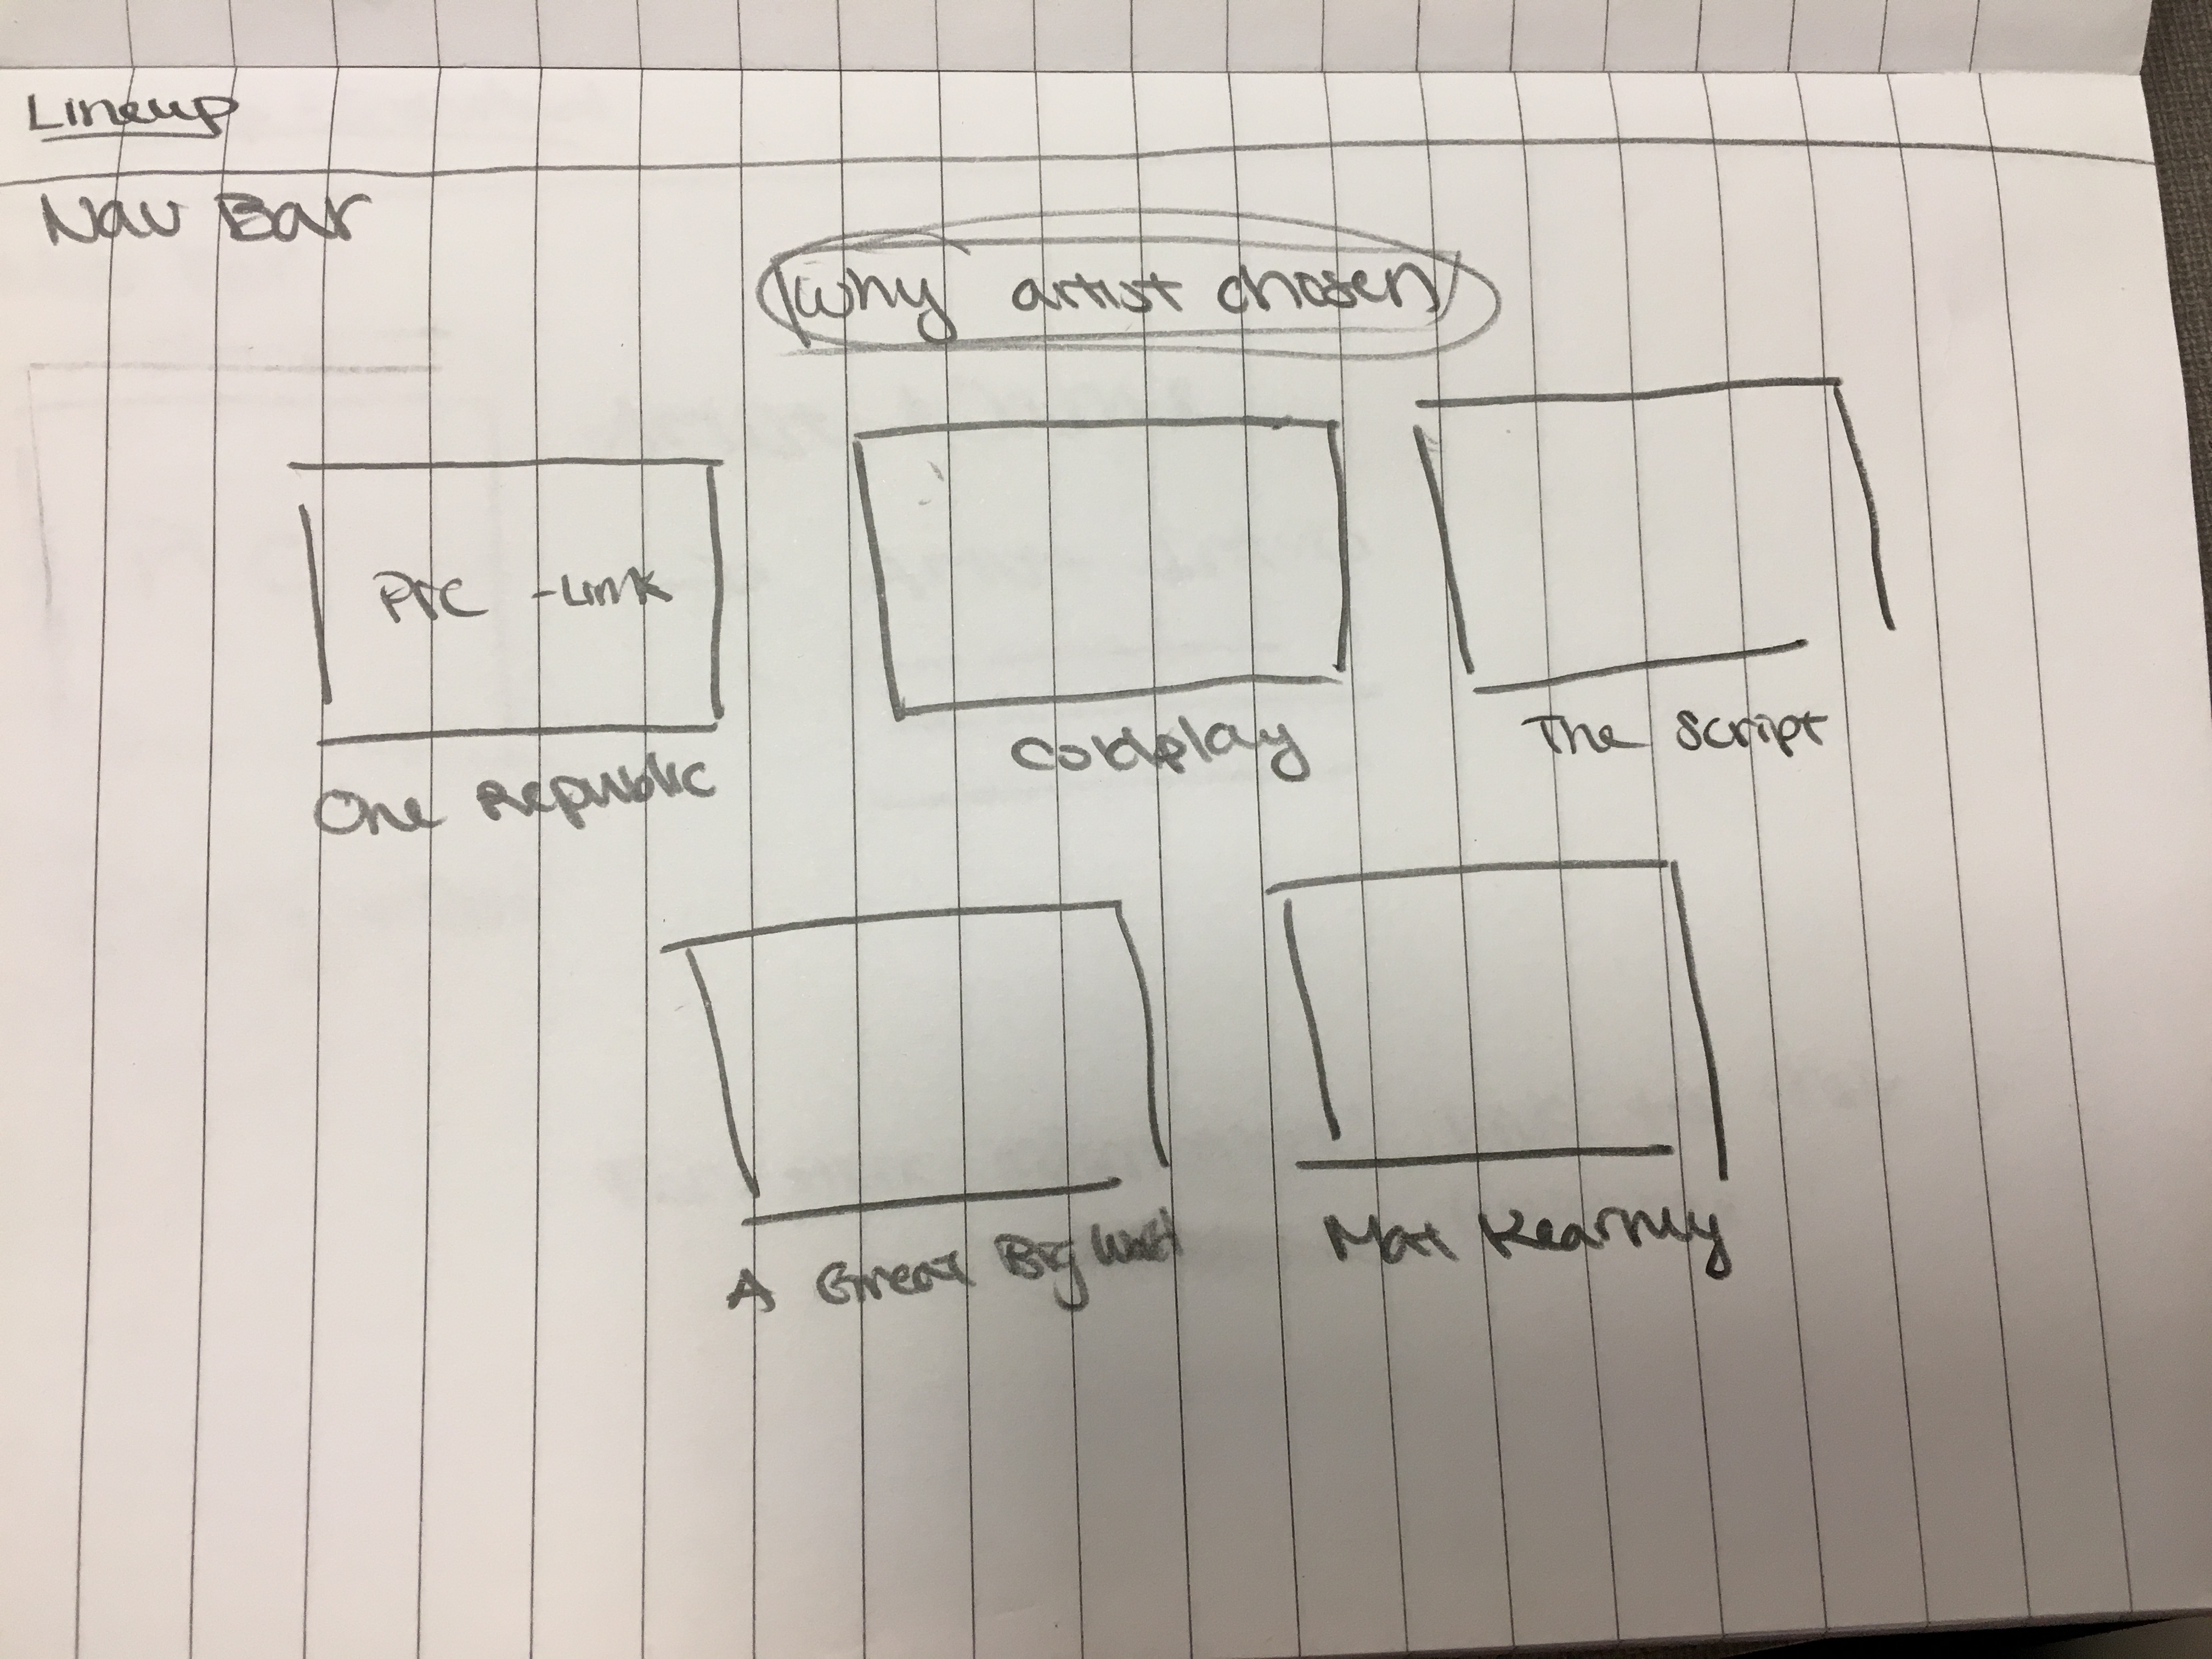 Lineup
Nav Bar
Why artist chosen
Pic - Link
One Republic
Coldplay
The Script
A Great Big
Mat Kearney